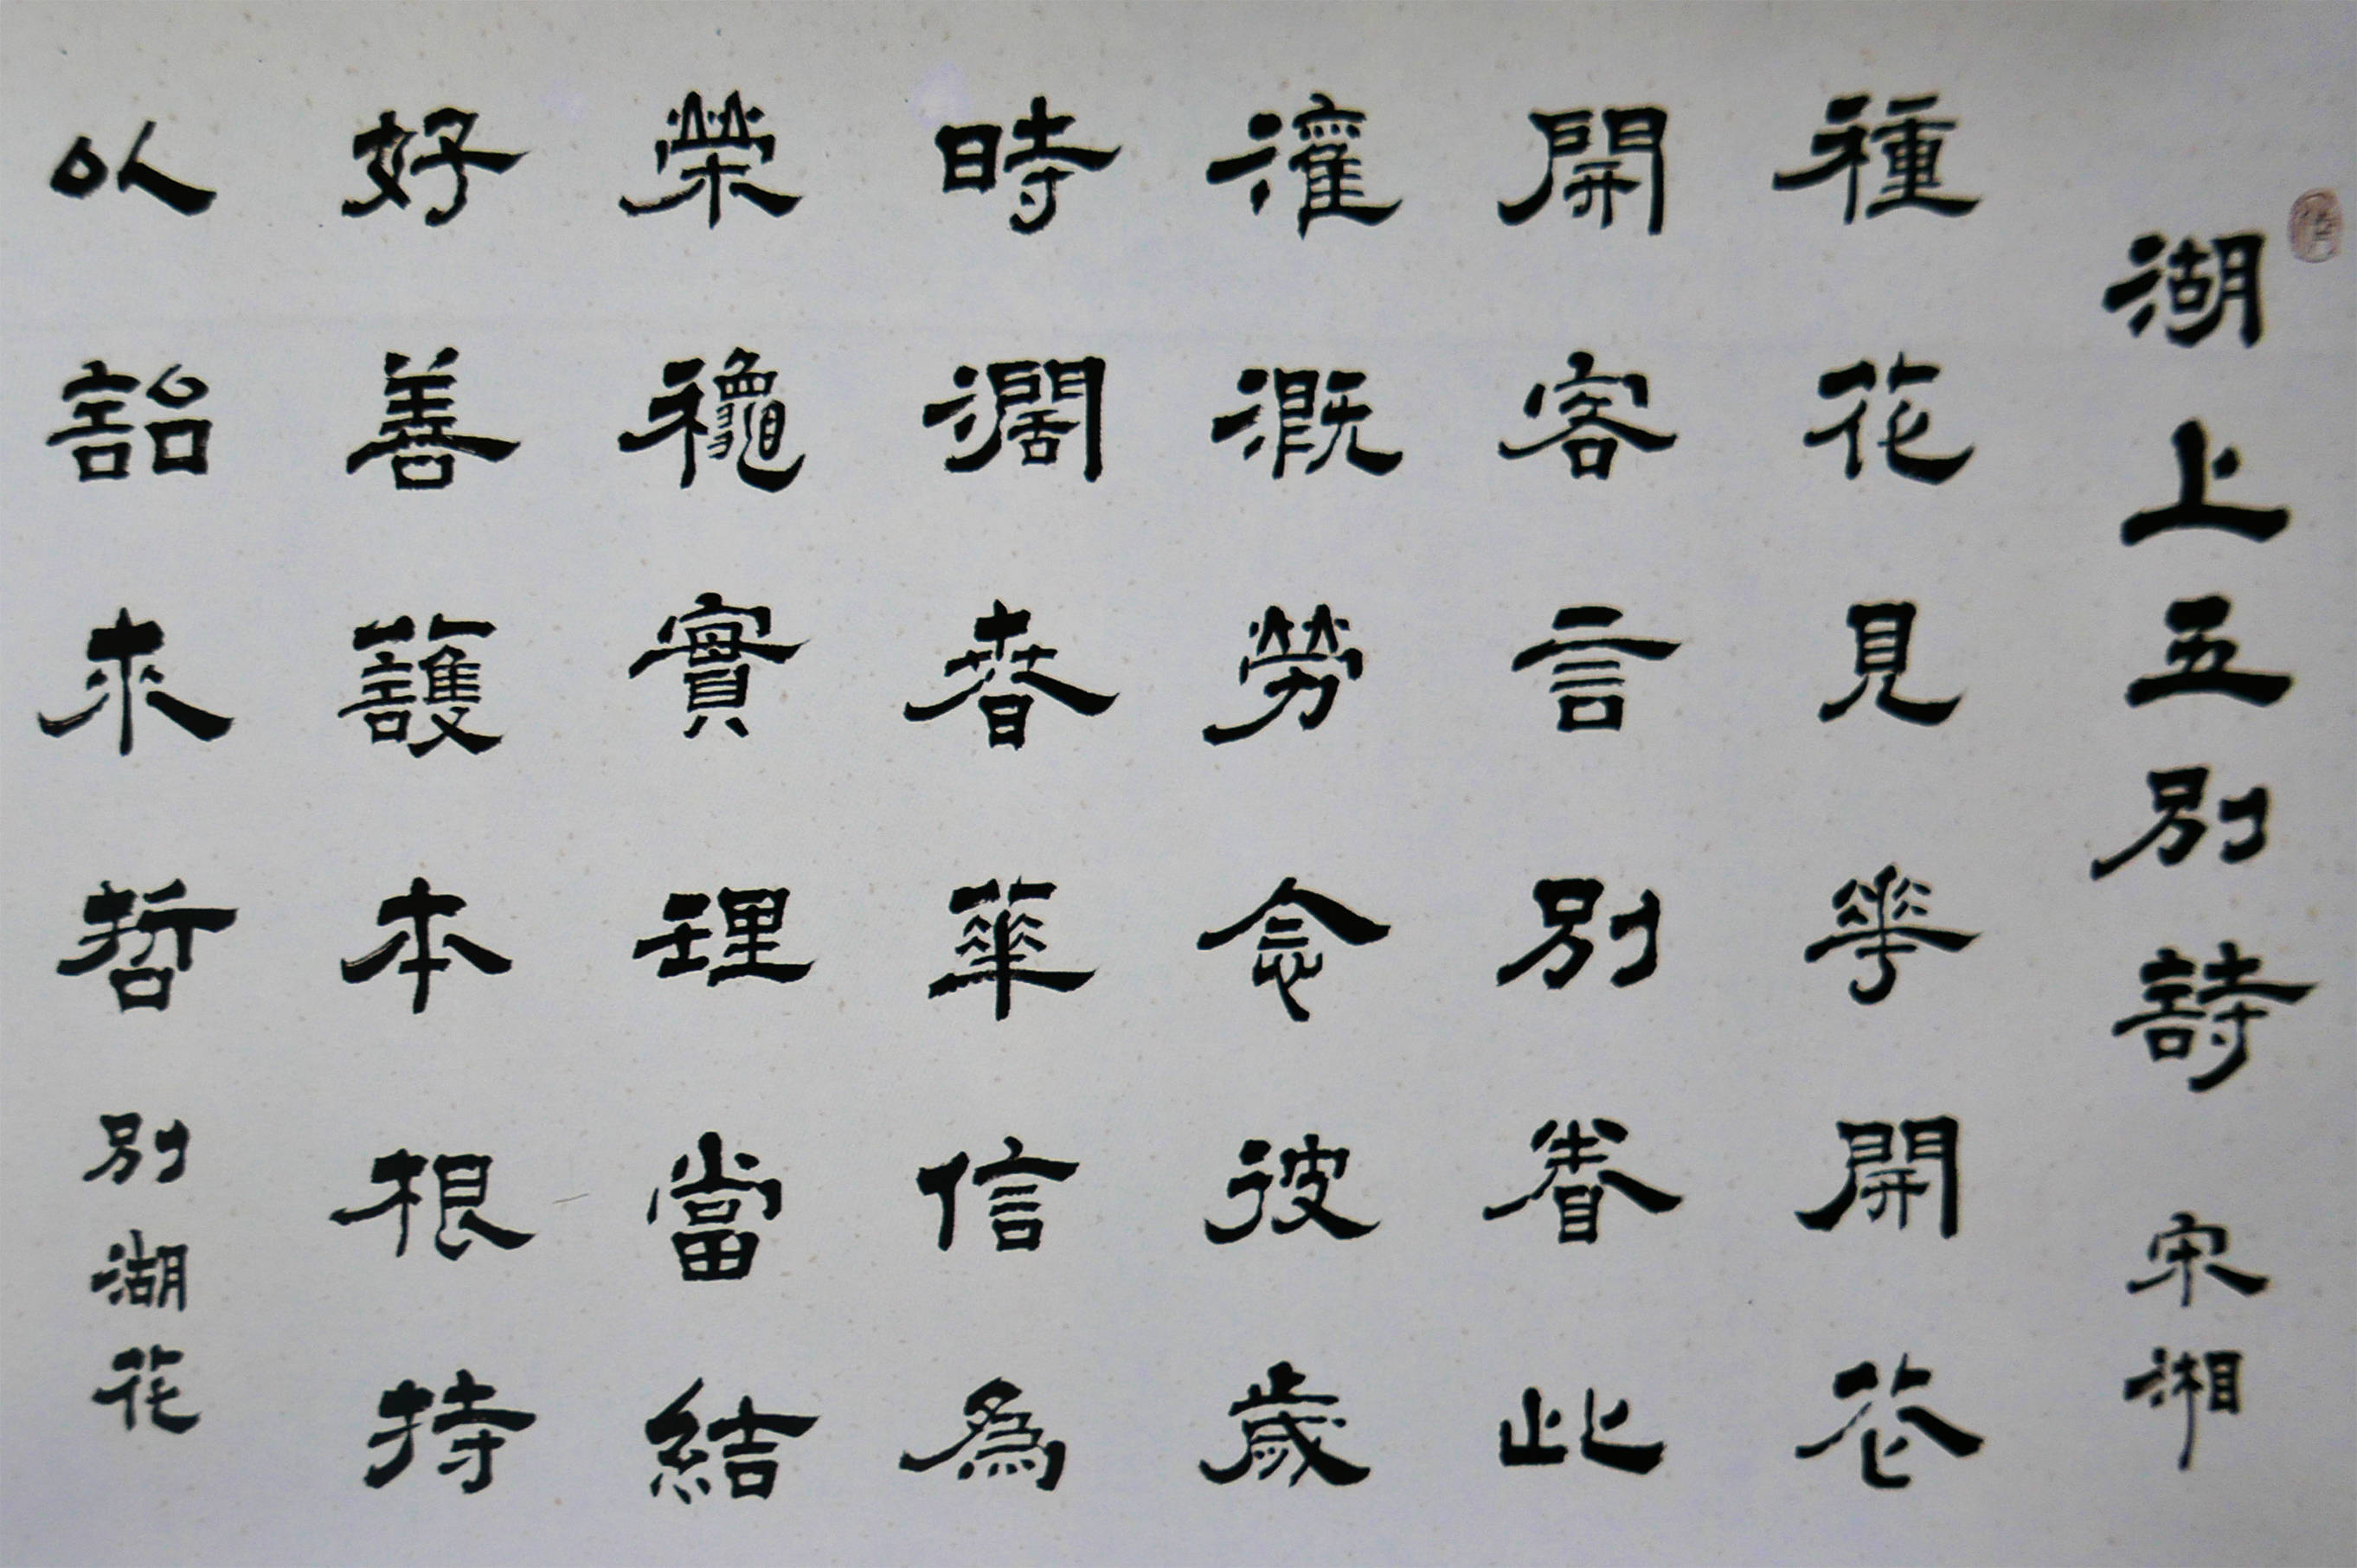 湖上五別詩 宋湘
種花見華開花
開客言別眷此
灌溉勞念彼歲
時濶春華信為
榮龝實理當結
好善護本根持
以詒來哲 別湖花